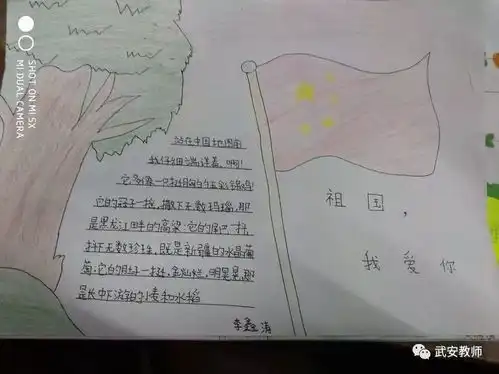 SHOT ON MI 5X
MI DUAL CAMERA
站在中国地图前
我仔细端详着,啊!
它多像一只栩栩如生的金鸡!
它的冠子一摇,撒下无数玛瑙,那
是黑龙江畔的高粱;它的尾巴一抖,
抖下无数珍珠,既是新疆的水晶葡
萄;它的肚子一挺,金灿灿,明晃晃,那
是长中下游的小麦和水稻
李鑫涛
祖国,
我爱你
武安教师